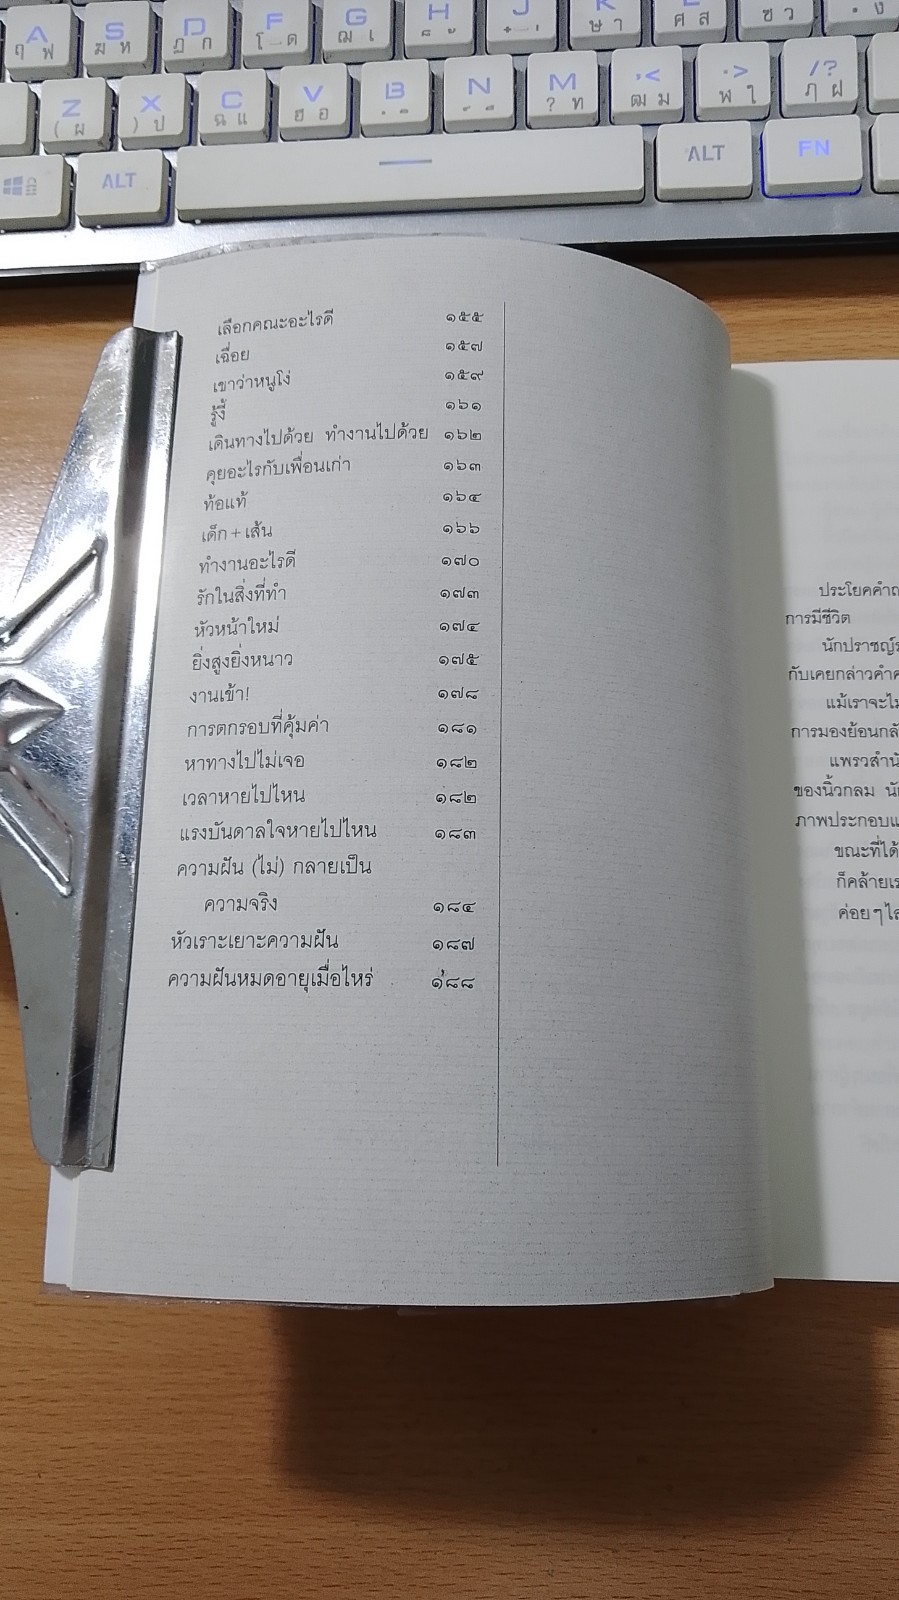 A S D F G H J K
ฤ ฟ ฆ ห ฏ ก โ ด ฌ เ ษ า ศ ส ซ ว
Z X C V B N M , < . > / ?
( ผ ) ป ฉ แ ฮ อ ? ท ฒ ม ฬ ใ ฦ ฝ
ALT ALT FN
เลือกคณะอะไรดี ๑๕๕
เฉื่อย ๑๕๗
เขาว่าหนูโง่ ๑๕๙
รู้งี้ ๑๖๑
เดินทางไปด้วย ทำงานไปด้วย ๑๖๒
คุยอะไรกับเพื่อนเก่า ๑๖๓
ท้อแท้ ๑๖๔
เด็ก + เส้น ๑๖๖
ทำงานอะไรดี ๑๗๐
รักในสิ่งที่ทำ ๑๗๓
หัวหน้าใหม่ ๑๗๔
ยิ่งสูงยิ่งหนาว ๑๗๕
งานเข้า! ๑๗๘
การตกรอบที่คุ้มค่า ๑๘๑
หาทางไปไม่เจอ ๑๘๒
เวลาหายไปไหน ๑๘๒
แรงบันดาลใจหายไปไหน ๑๘๓
ความฝัน (ไม่) กลายเป็น
ความจริง ๑๘๔
หัวเราะเยาะความฝัน ๑๘๗
ความฝันหมดอายุเมื่อไหร่ ๑๘๘
ประโยคคำถ
การมีชีวิต
นักปราชญ์
กับเคยกล่าวคำ
แม้เราจะไม
การมองย้อนกลั
แพรวสำนั
ของนิ้วกลม นั
ภาพประกอบแ
ขณะที่ได้
ก็คล้ายเร
ค่อยๆ ไล